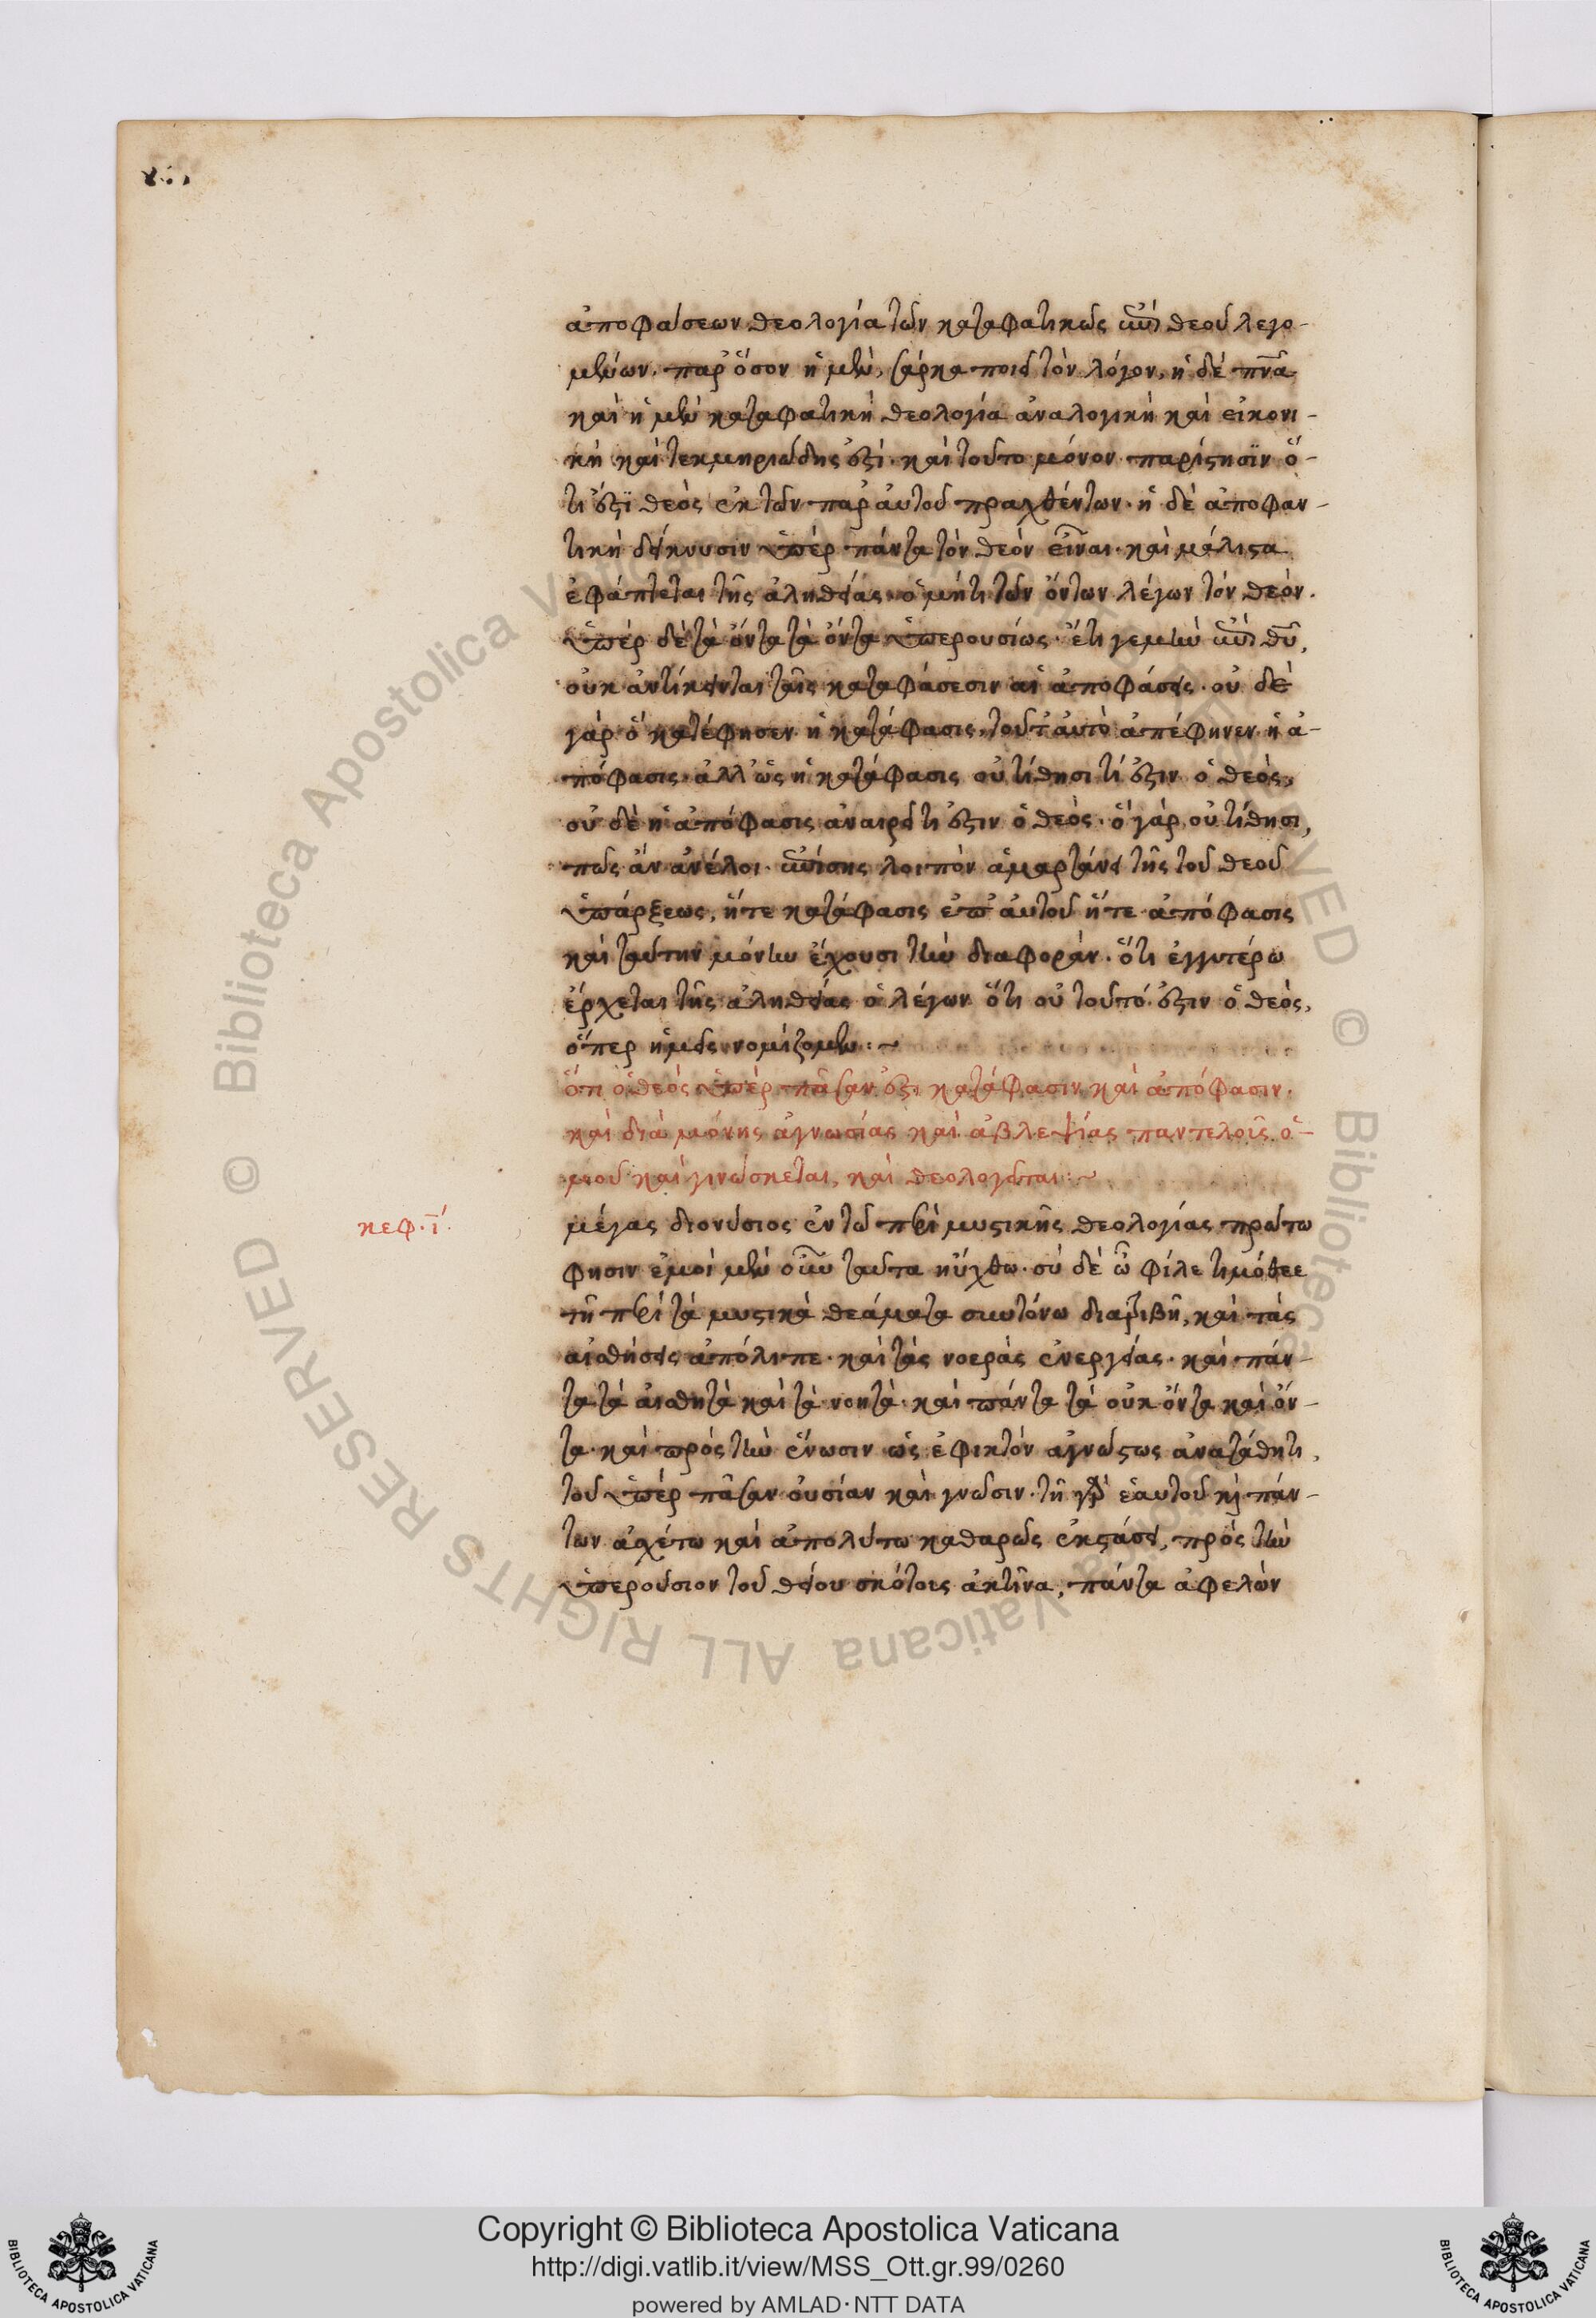 ἀποφάσεων θεολογία τῶν καταφατικῶς ἐπὶ θεοῦ λεγο-
μένων. παρ' ὅσον ἡ μὲν, σάρκα ποιεῖ τὸν λόγον, ἡ δὲ πνα
καὶ ἡ μὲν καταφατικὴ θεολογία ἀναλογικὴ καὶ εἰκονι-
κὴ καὶ τεκμηριώδης ἐστί. καὶ τοῦτο μόνον παρίστησϊν ὅ-
τι ἐστϊ θεὸς ἐκ τῶν παρ' αὐτοῦ πραχθέντων. ἡ δὲ ἀποφαν-
τικὴ δείκνυσιν ὑπὲρ πάντα τὸν θεὸν εἶναι. καὶ μάλιστα
ἐφάπτεται τῆς ἀληθείας. ὁ μήτι τῶν ὄντων λέγων τὸν θεόν.
ὑπὲρ δὲ τὰ ὄντα τὰ ὄντα ὑπερουσίως. ἔτι γε μὴν ἐπὶ θυ,
οὐκ ἀντίκεινται ταῖς καταφάσεσιν αἱ ἀποφάσεις. οὐ δὲ
γὰρ ὃ κατέφησεν ἡ κατάφασις, τοῦτ' αὐτὸ ἀπέφηνεν ἡ ἀ-
πόφασις. ἀλλ' ὡς ἡ κατάφασις οὐ τίθησι τί ἐστιν ὁ θεὸς,
οὐ δὲ ἡ ἀπόφασις ἀναιρεῖ τι ἐστιν ὁ θεὸς. ὃ γὰρ οὐ τίθησι,
πῶς ἂν ἀνέλοι. ἐπίσης λοιπὸν ἁμαρτάνει τῆς τοῦ θεοῦ
ὑπάρξεως, ἥτε κατάφασις ἐπ' αὐτοῦ ἥτε ἀπόφασις
καὶ ταύτην μόνην ἔχουσι τὴν διαφοράν. ὅτι ἐγγυτέρω
ἔρχεται τῆς ἀληθείας ὁ λέγων ὅτι οὐ τοῦτό ἐστιν ὁ θεὸς,
ὅπερ ἡμεῖς νομίζομεν:~
ὅτι ὁ θεὸς ὑπὲρ πᾶσαν ἐστι κατάφασιν καὶ ἀπόφασιν.
καὶ διὰ μόνης ἀγνωσίας καὶ ἀβλεψίας παντελοῖς ὁ-
μοῦ καὶ γινώσκεται, καὶ θεολογεῖται:~
κεφ. ί.
μέγας διονύσιος ἐν τῶ περὶ μυστικῆς θεολογίας πρώτω
φησιν ἐμοὶ μὲν οὖν ταῦτα ηὔχθω. σὺ δὲ ὦ φίλε τιμόθεε
τῆ περὶ τὰ μυστικὰ θεάματα συντόνω διατριβῆ, καὶ τὰς
αἰσθήσεις ἀπόλιπε. καὶ τὰς νοερὰς ἐνεργείας. καὶ πάν-
τα τὰ αἰσθητὰ καὶ τὰ νοητὰ. καὶ πάντα τὰ οὐκ ὄντα καὶ ὄν-
τα. καὶ πρὸς τὴν ἕνωσιν ὡς ἐφικτὸν ἀγνώστως ἀνατάθητι,
τοῦ ὑπὲρ πᾶσαν οὐσίαν καὶ γνῶσιν. τῆ γὰρ ἑαυτοῦ κὶ πάν-
των ἀσχέτω καὶ ἀπολύτω καθαρῶς ἐκστάσει, πρὸς τὴν
ὑπερούσιον τοῦ θείου σκότους ἀκτῖνα, πάντα ἀφελὼν
Copyright © Biblioteca Apostolica Vaticana
http://digi.vatlib.it/view/MSS_Ott.gr.99/0260
powered by AMLAD·NTT DATA
© Biblioteca Apostolica Vaticana ALL RIGHTS RESERVED